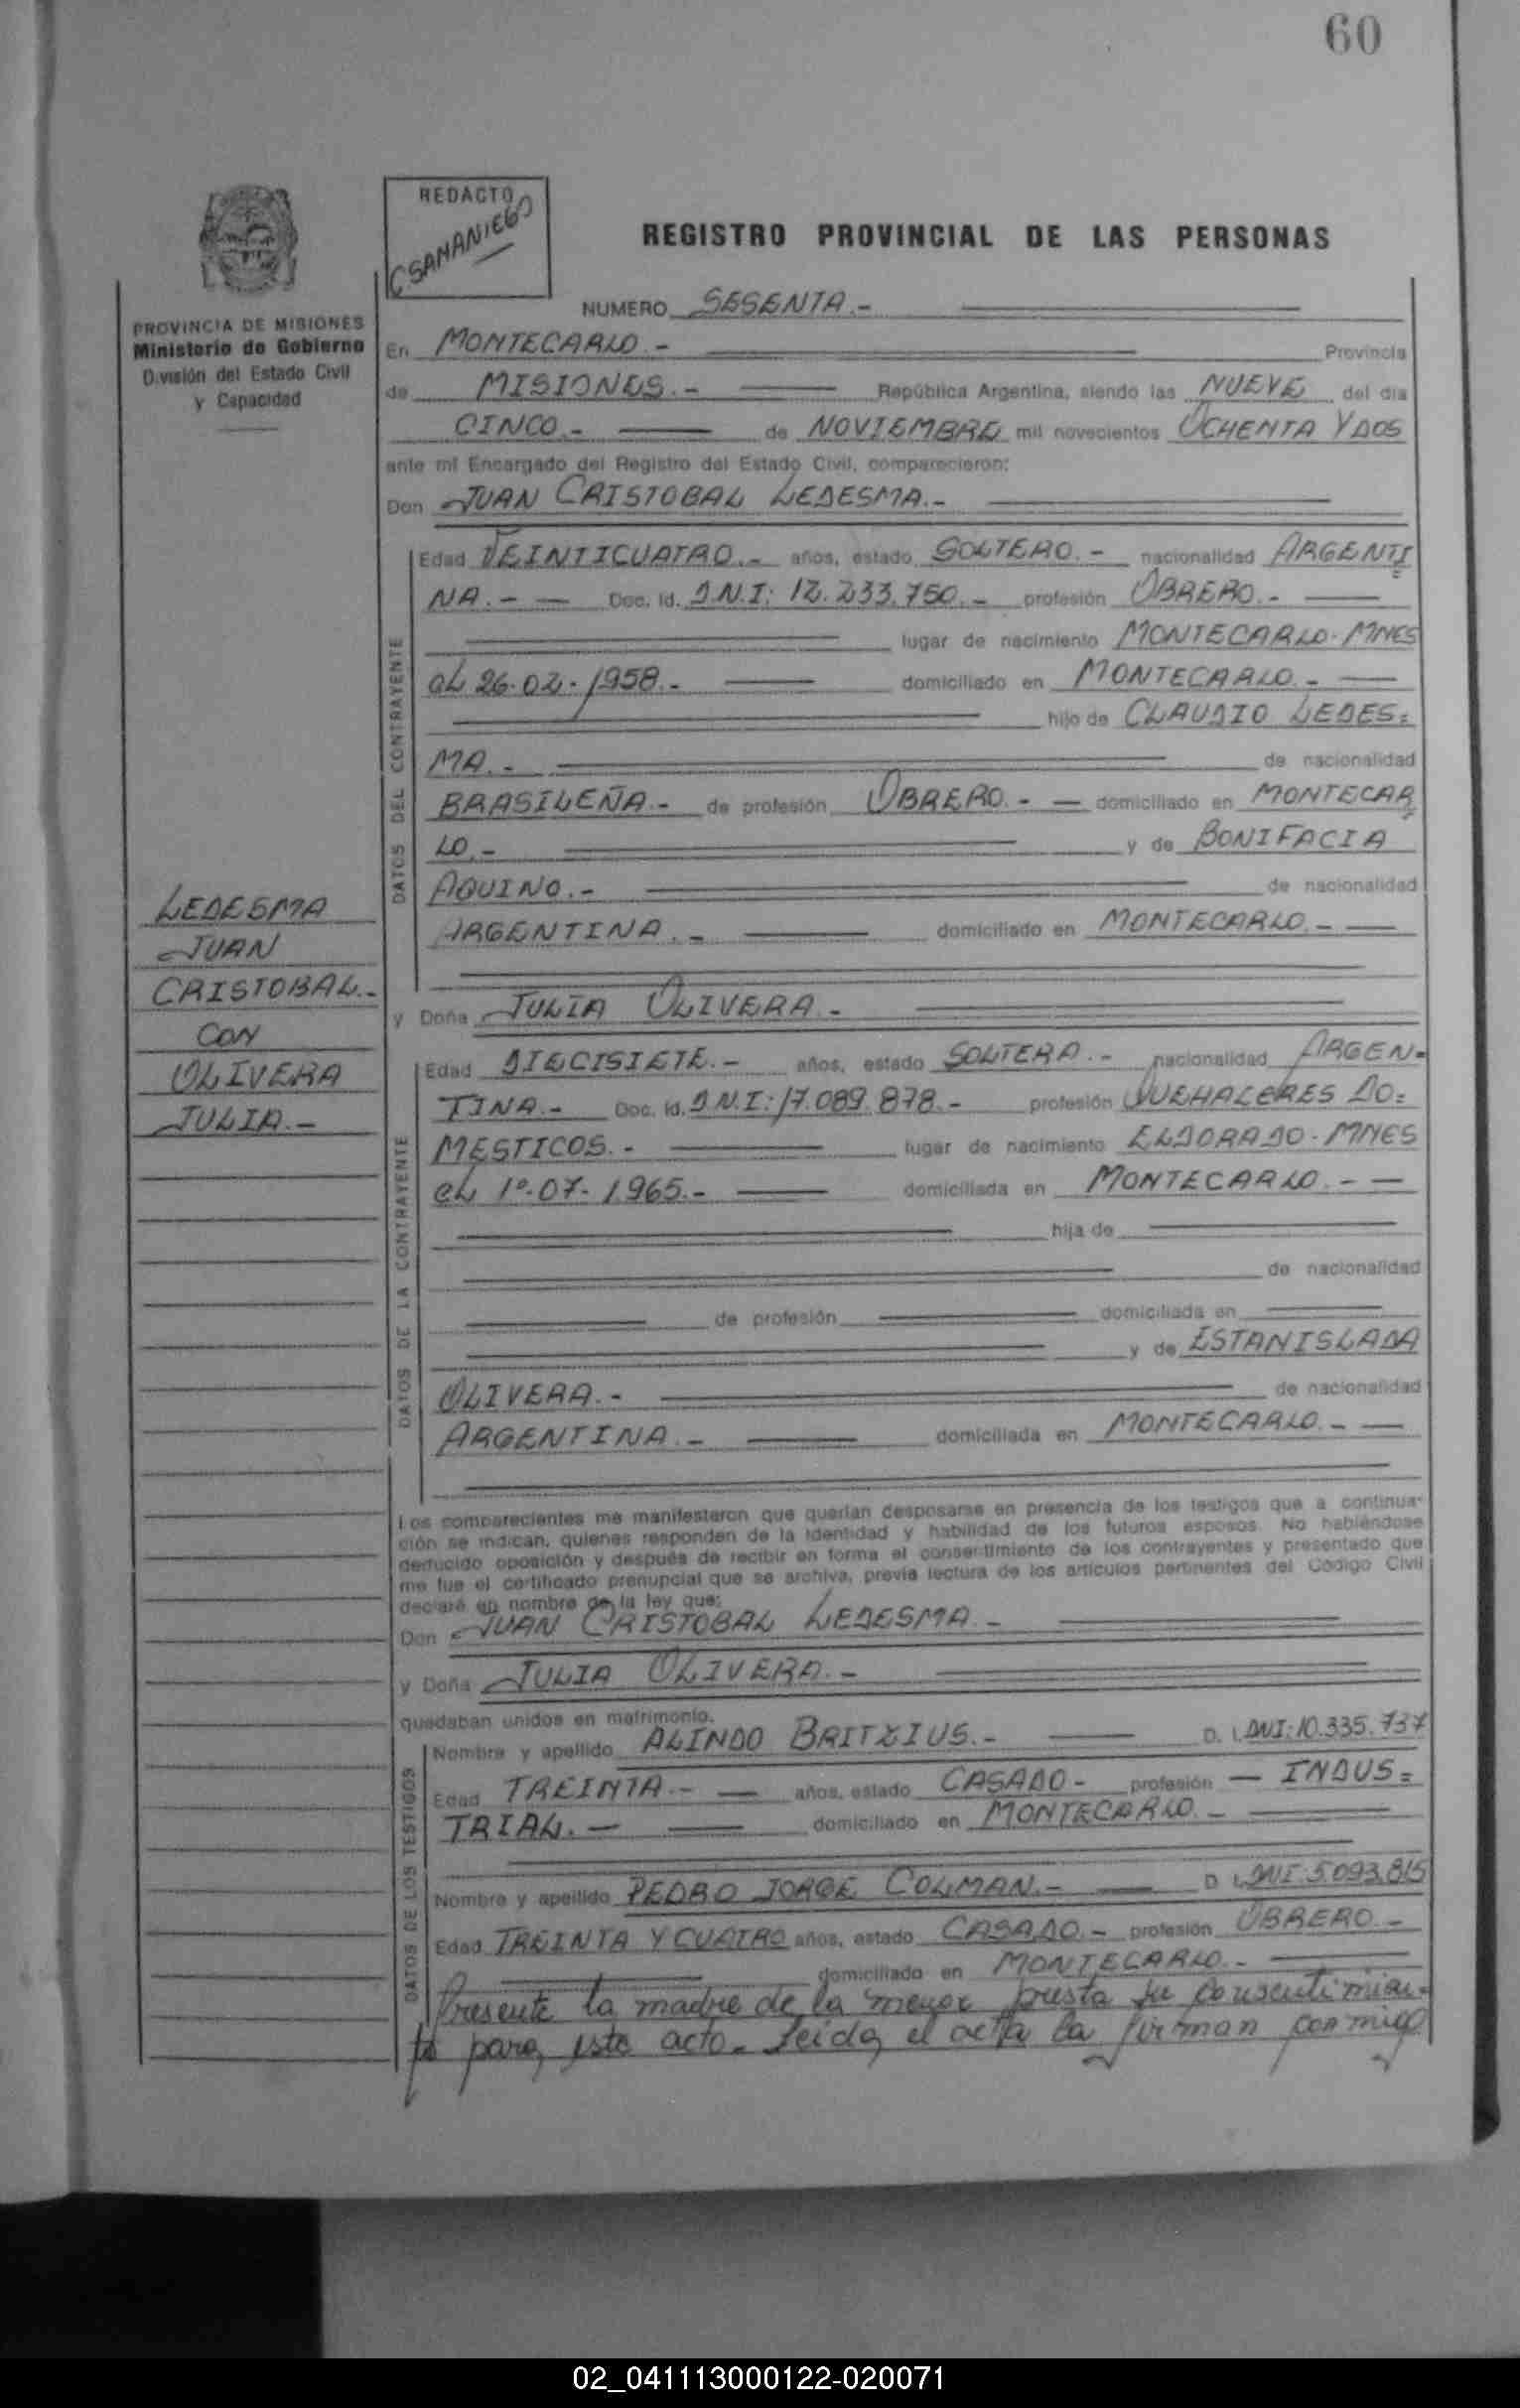 60
REDACTO
C SAMANIEGO
REGISTRO PROVINCIAL DE LAS PERSONAS
PROVINCIA DE MISIONES
Ministerio de Gobierno
División del Estado Civil
y Capacidad
NUMERO SESENTA.-
En MONTECARLO.- Provincia
de MISIONES.- República Argentina, siendo las NUEVE del día
CINCO.- de NOVIEMBRE mil novecientos OCHENTA Y DOS
ante mí Encargado del Registro del Estado Civil, comparecieron:
Don JUAN CRISTOBAL LEDESMA.-
DATOS DEL CONTRAYENTE
Edad VEINTICUATRO.- años, estado SOLTERO.- nacionalidad ARGENTI
NA.- - Doc. Id. D.N.I: 12.233.750.- profesión OBRERO.-
lugar de nacimiento MONTECARLO-MNES
el 26-02-1958.- domiciliado en MONTECARLO.-
hijo de CLAUDIO LEDES=
MA.- de nacionalidad
BRASILEÑA.- de profesión OBRERO.- - domiciliado en MONTECAR
LO.- y de BONIFACIA
AQUINO.- de nacionalidad
ARGENTINA.- domiciliado en MONTECARLO.-
LEDESMA
JUAN
CRISTOBAL.-
CON
OLIVERA
JULIA.-
y Doña JULIA OLIVERA.-
DATOS DE LA CONTRAYENTE
Edad DIECISIETE.- años, estado SOLTERA.- nacionalidad ARGEN=
TINA.- Doc. Id. D.N.I: 17.089.878.- profesión QUEHACERES DO=
MESTICOS.- lugar de nacimiento ELDORADO-MNES
el 1º-07-1965.- domiciliada en MONTECARLO.- -
hija de
de nacionalidad
de profesión domiciliada en
y de ESTANISLADA
OLIVERA.- de nacionalidad
ARGENTINA.- domiciliada en MONTECARLO.-
Los comparecientes me manifestaron que querían desposarse en presencia de los testigos que a continua-
ción se indican, quienes responden de la identidad y habilidad de los futuros esposos. No habiéndose
deducido oposición y después de recibir en forma el consentimiento de los contrayentes y presentado que
me fue el certificado prenupcial que se archiva, previa lectura de los artículos pertinentes del Código Civil
declaré en nombre de la ley que:
Don JUAN CRISTOBAL LEDESMA.-
y Doña JULIA OLIVERA.-
quedaban unidos en matrimonio.
DATOS DE LOS TESTIGOS
Nombre y apellido ALINDO BRITZIUS.- D. I. DNI: 10.335.737
Edad TREINTA.- - años, estado CASADO- profesión - INDUS=
TRIAL.- domiciliado en MONTECARLO.-
Nombre y apellido PEDRO JORGE COLMAN.- D. I. DNI: 5.093.815
Edad TREINTA Y CUATRO años, estado CASADO.- profesión OBRERO.-
domiciliado en MONTECARLO.-
Presente la madre de la menor presta su consentimien=
to para este acto.- Leída el acta la firman conmigo
02_041113000122-020071